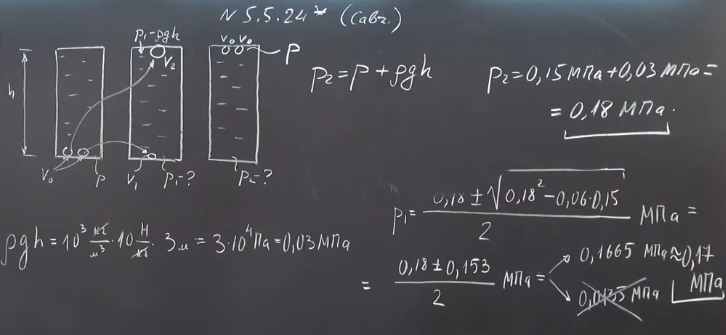 N 5.5.24* (Савч.)
p₁-ρgh
V₂
V₀ V₀
p
h
V₀
p
V₁
p₁-?
p₂-?
p₂ = p + ρgh
p₂ = 0,15 МПа + 0,03 МПа =
= 0,18 МПа.
ρgh = 10³ кг/м³ · 10 Н/кг · 3 м = 3·10⁴ Па = 0,03 МПа
p₁ = (0,18 ± √(0,18² - 0,06·0,15))/2 МПа =
= (0,18 ± 0,153)/2 МПа =
0,1665 МПа ≈ 0,17 МПа
0,0135 МПа